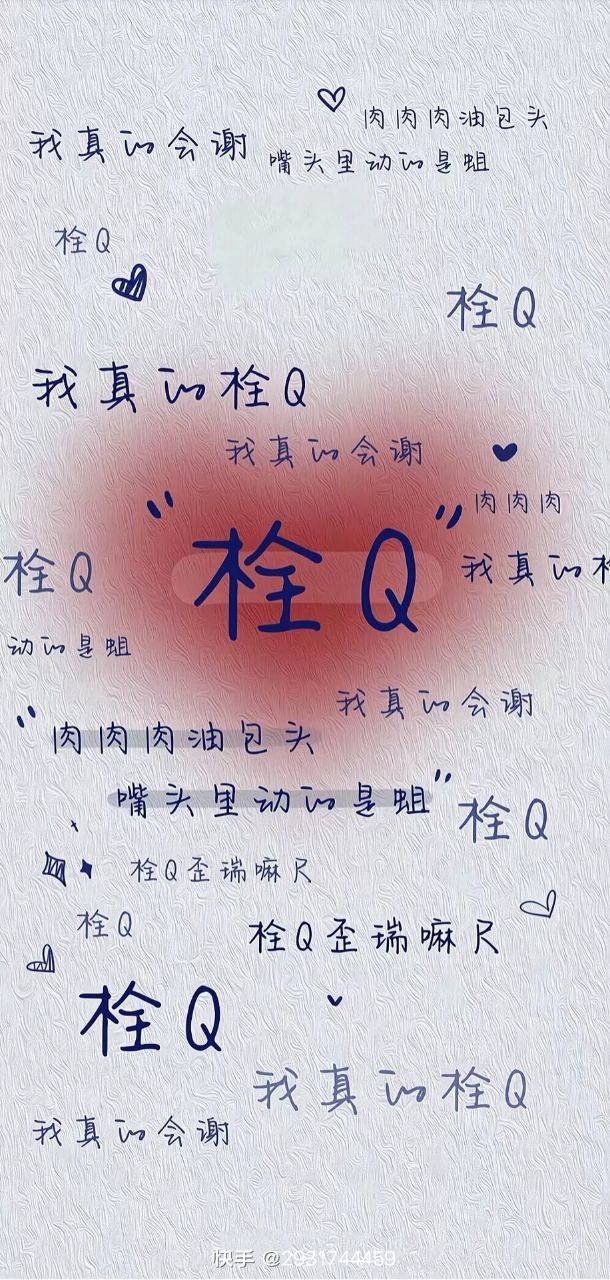 肉肉肉油包头
我真的会谢
嘴头里动的是蛆
栓Q
栓Q
我真的栓Q
我真的会谢
肉肉肉
"栓Q"
栓Q
我真的栓
动的是蛆
我真的会谢
"肉肉肉油包头
嘴头里动的是蛆"
栓Q
栓Q歪瑞嘛尺
栓Q
栓Q歪瑞嘛尺
栓Q
我真的栓Q
我真的会谢
快手 @2931744459